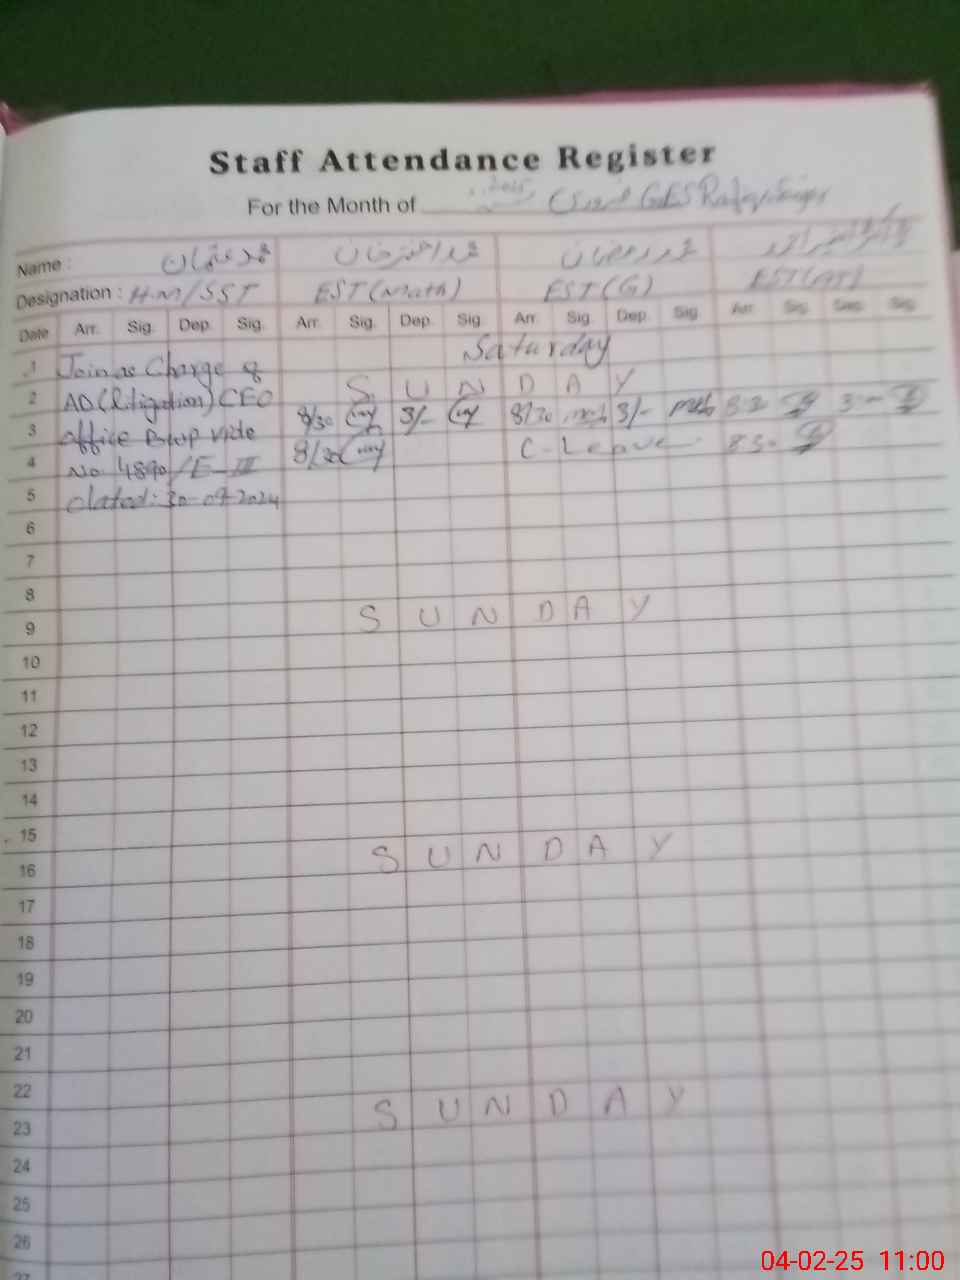 Staff Attendance Register
For the Month of 2025 GES
Name : محمد عثمان محمد اختر خان محمد رمضان
Designation : H.M/SST EST(Math) EST(G) EST(AT)
Date Arr. Sig. Dep. Sig. Arr. Sig. Dep. Sig. Arr. Sig. Dep. Sig. Arr. Sig. Dep. Sig.
1 Join as Charge of Saturday
2 AD(Litigation) CEO S U N D A Y
3 office Bwp vide 8/30 3/- 8/30 3/-
4 No. 4890/E-III 8/30 C-Leave 8.30
5 dated: 30-09-2024
6
7
8
9 S U N D A Y
10
11
12
13
14
15
16 S U N D A Y
17
18
19
20
21
22
23 S U N D A Y
24
25
26
27
04-02-25 11:00